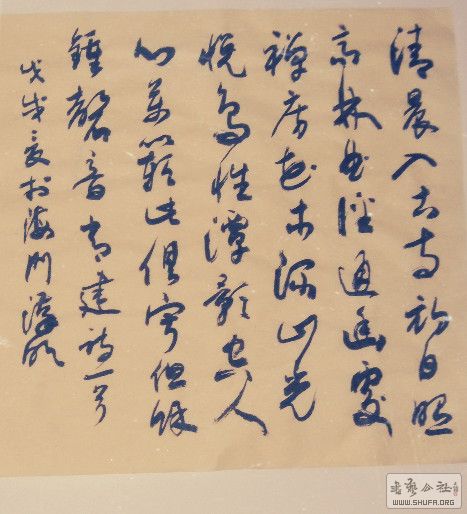 清晨入古寺初日照
高林曲徑通幽處
禪房花木深山光
悦鳥性潭影空人
心萬籟此俱寂但餘
鍾磬音常建詩一首
戊戌夏於海門
书艺公社
WWW.SHUFA.ORG